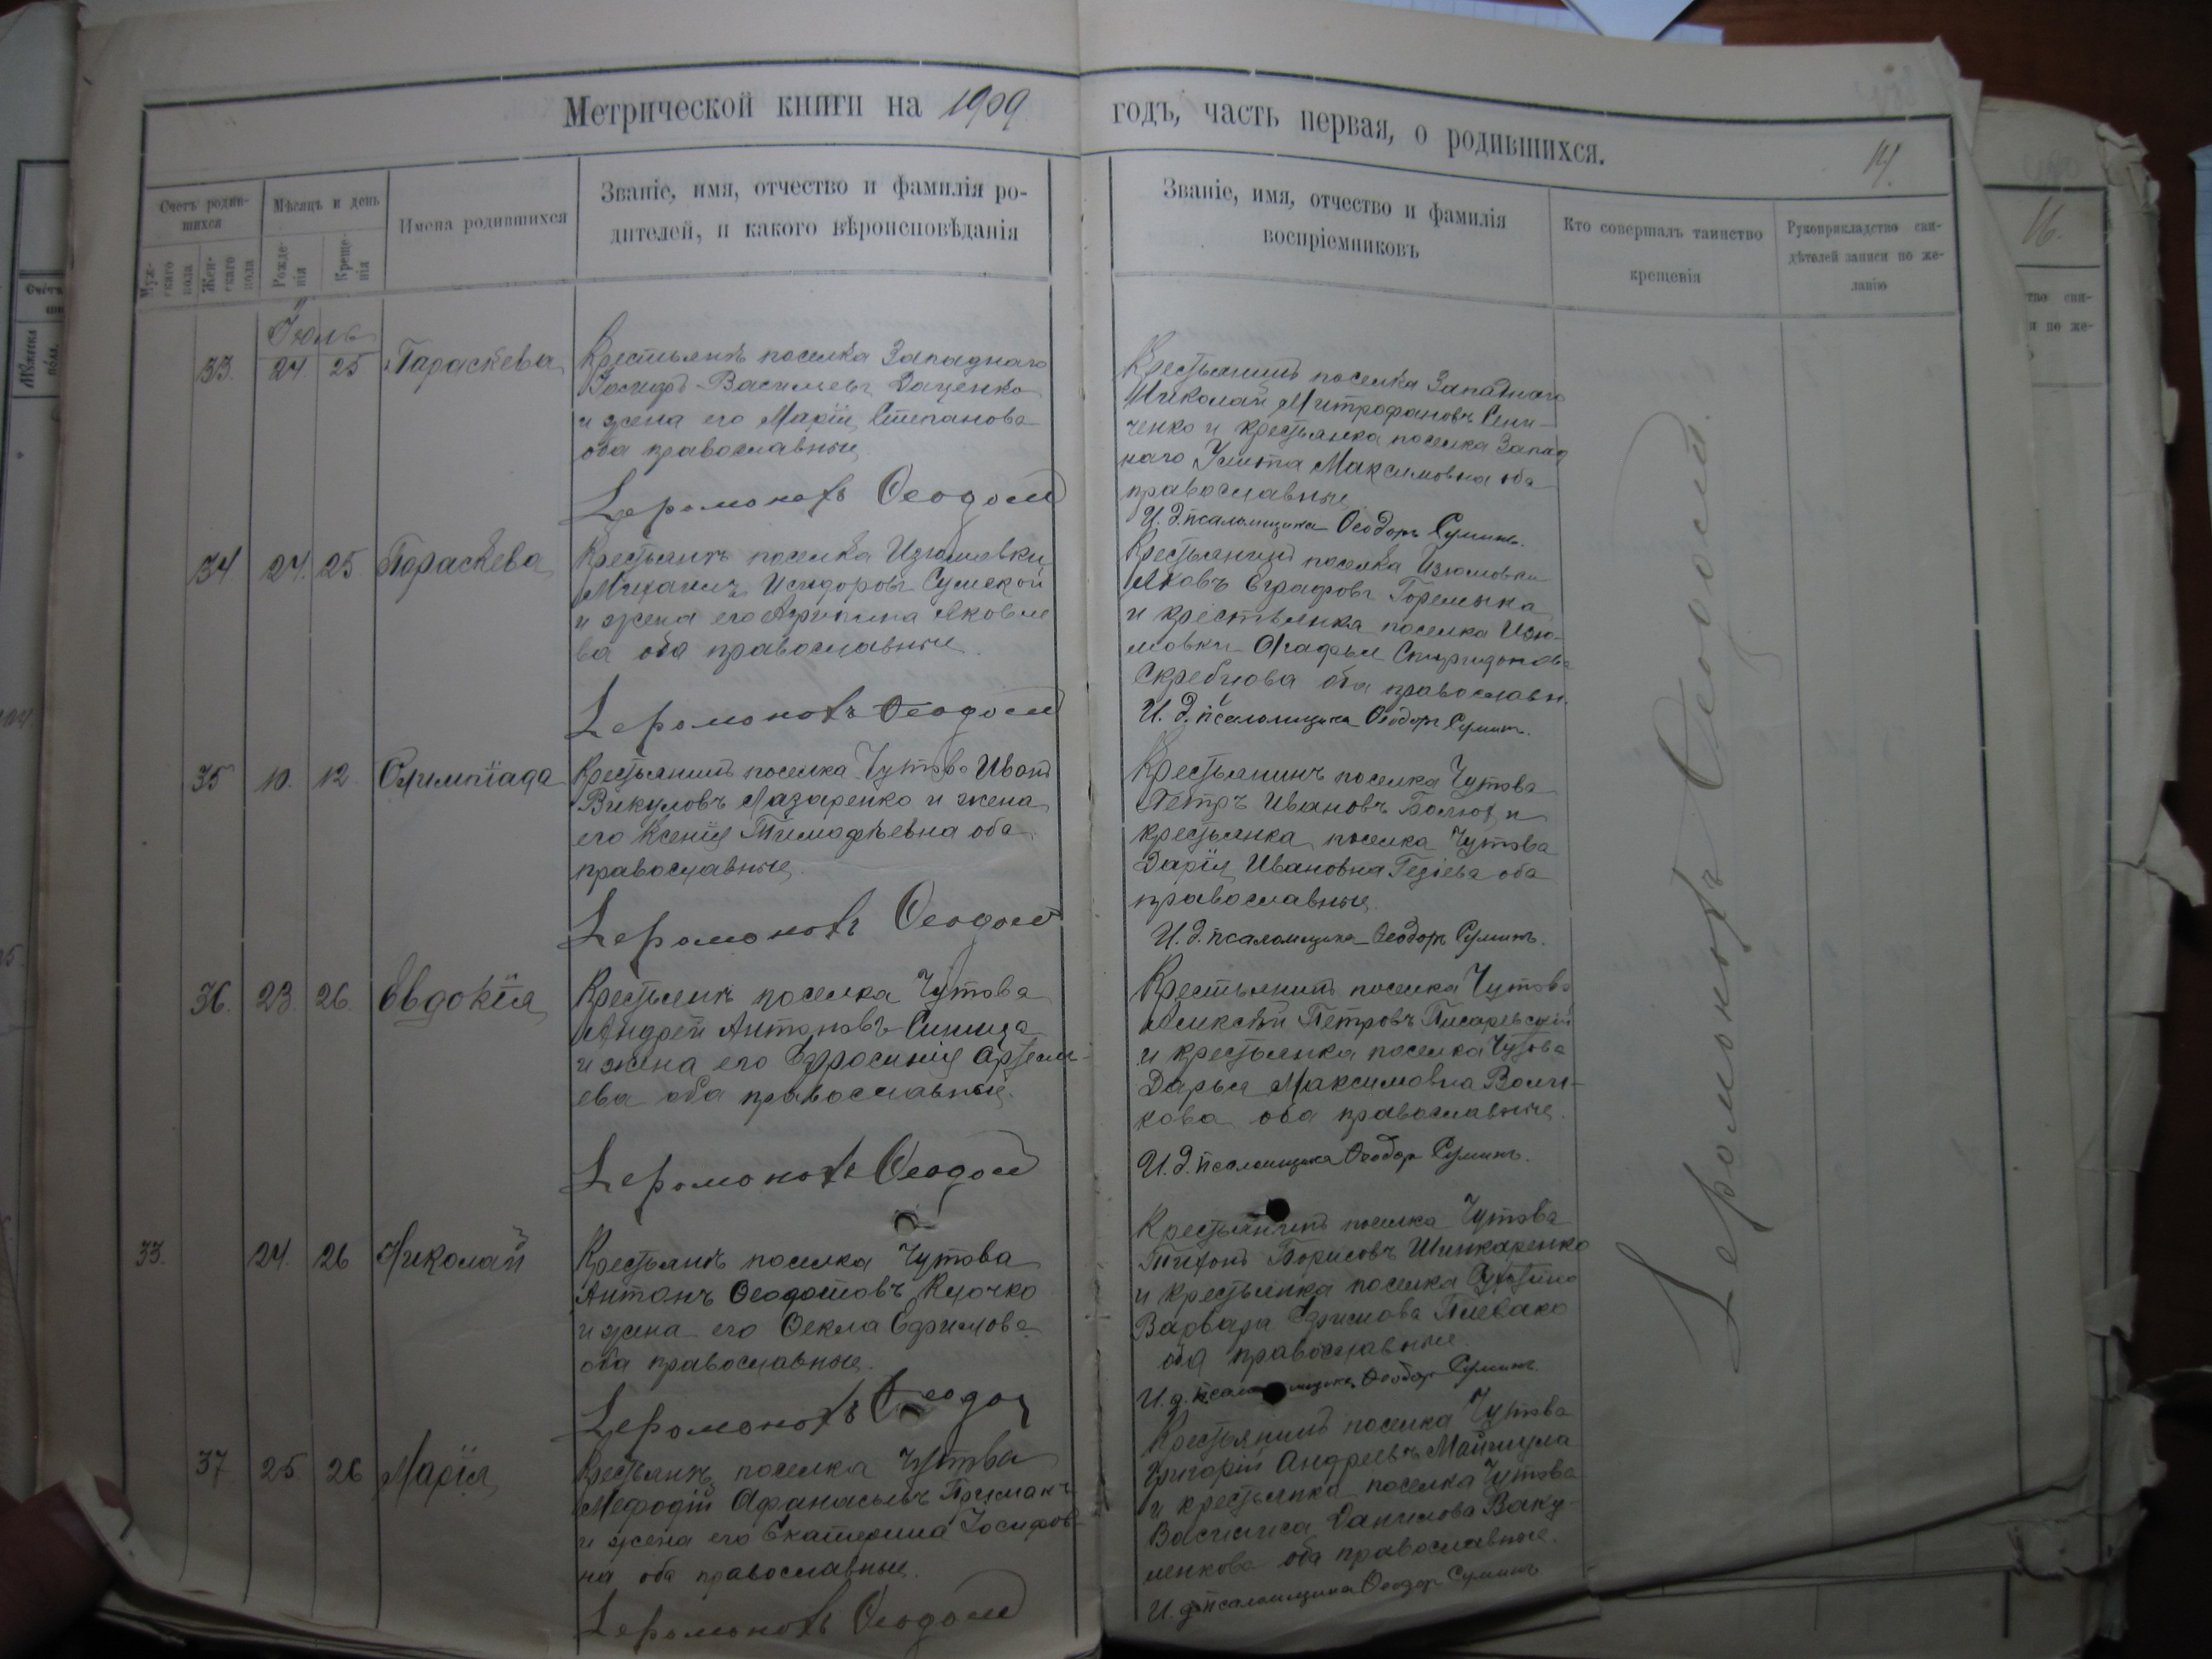 Метрической книги на 1909 годъ, часть первая, о родившихся.
14.
Счетъ родив-
шихся
Мужс-
каго
пола
Жен-
скаго
пола
Мѣсяцъ и день
Рожде-
нія
Креще-
нія
Имена родившихся
Званіе, имя, отчество и фамилія ро-
дителей, и какого вѣроисповѣданія
Званіе, имя, отчество и фамилія
воспріемниковъ
Кто совершалъ таинство
крещенія
Рукоприкладство сви-
дѣтелей записи по же-
ланію
Іюль
33. 24 25 Параскева
Крестьянинъ поселка Западнаго
Іосифъ Васильевъ Даценко
и жена его Марія Степанова
оба православные
Іеромонахъ Ѳеодосій
Крестьянинъ поселка Западнаго
Николай Митрофановъ Сени-
ченко и крестьянка поселка Запад
наго Улита Максимовна оба
православные
И. д. псаломщика Ѳеодоръ Суминъ.
34. 24. 25. Параскева
Крестьянинъ поселка Изюмовки
Михаилъ Исидоровъ Сумской
и жена его Агрипина Яковле
ва оба православные.
Іеромонахъ Ѳеодосій
Крестьянинъ поселка Изюмовки
Яковъ Евграфовъ Горемыка
и крестьянка поселка Изю-
мовки Агафья Спиридонова
Скребцова оба православн.
И. д. псаломщика Ѳеодоръ Суминъ.
35 10. 12 Олимпіада
Крестьянинъ поселка Чутова Иванъ
Викуловъ Лазаренко и жена
его Ксенія Тимофѣевна оба
православные.
Іеромонахъ Ѳеодосій
Крестьянинъ поселка Чутова
Петръ Ивановъ и
крестьянка поселка Чутова
Дарія Ивановна оба
православные.
И. д. псаломщика Ѳеодоръ Суминъ.
36. 23. 26. Евдокія
Крестьянинъ поселка Чутова
Андрей Антоновъ Синица
и жена его Ефросинія Артемі-
ева оба православные.
Іеромонахъ Ѳеодосій
Крестьянинъ поселка Чутова
Алексѣй Петровъ Писаревскій
и крестьянка поселка Чутова
Дарья Максимовна Волчи-
кова оба православные.
И. д. псаломщика Ѳеодоръ Суминъ.
33. 24. 26 Николай
Крестьянинъ поселка Чутова
Антонъ Ѳеодотовъ Клочко
и жена его Ѳекла Ефимова
оба православные.
Іеромонахъ Ѳеодосій
Крестьянинъ поселка Чутова
Тихонъ Борисовъ Шинкаренко
и крестьянка поселка
Варвара Ефимова Плевако
оба православные
И. д. псаломщика Ѳеодоръ Суминъ.
37 25 26 Марія
Крестьянинъ поселка Чутова
Меѳодій Афанасьевъ Примакъ
и жена его Екатерина Іосифов-
на оба православные.
Іеромонахъ Ѳеодосій
Крестьянинъ поселка Чутова
Григорій Андреевъ
и крестьянка поселка Чутова
Василиса Данилова Ваку-
ленкова оба православные.
И. д. псаломщика Ѳеодоръ Суминъ
Іеромонахъ Ѳеодосій.
16.